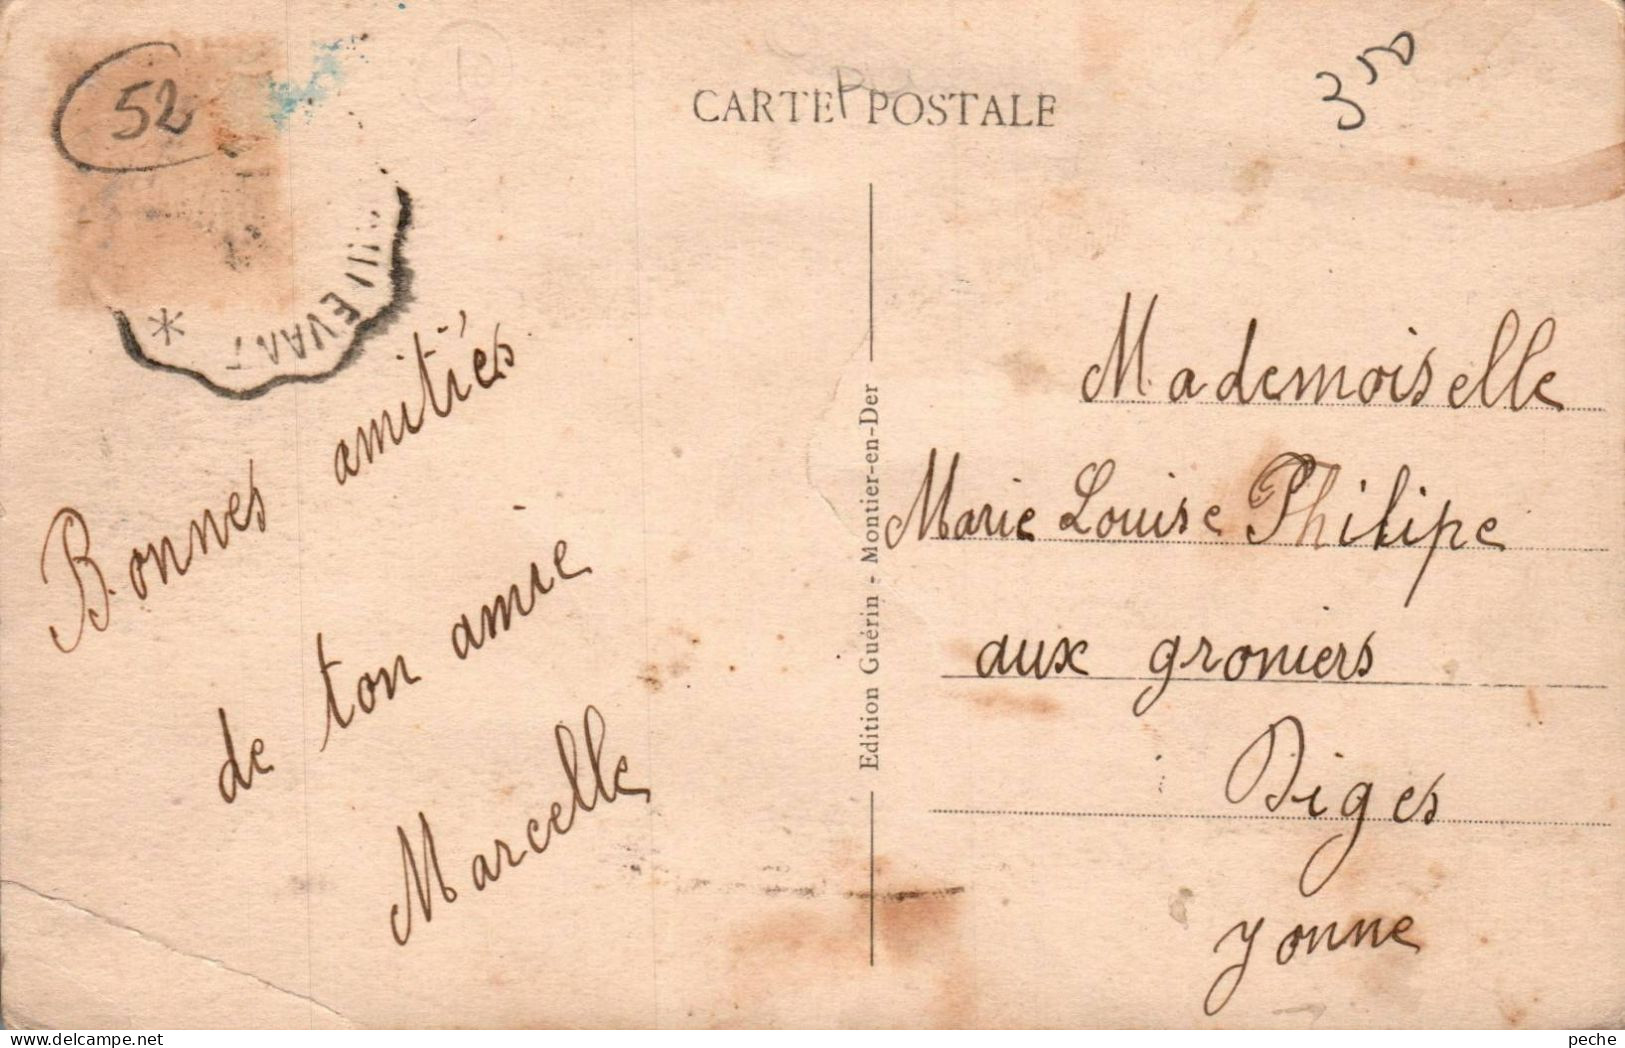 52
CARTE POSTALE
3 50
Bonnes amitiés
de ton amie
Marcelle
Edition Guérin - Montier-en-Der
Mademoiselle
Marie Louise Philipe
aux groniers
Diges
Yonne
peche